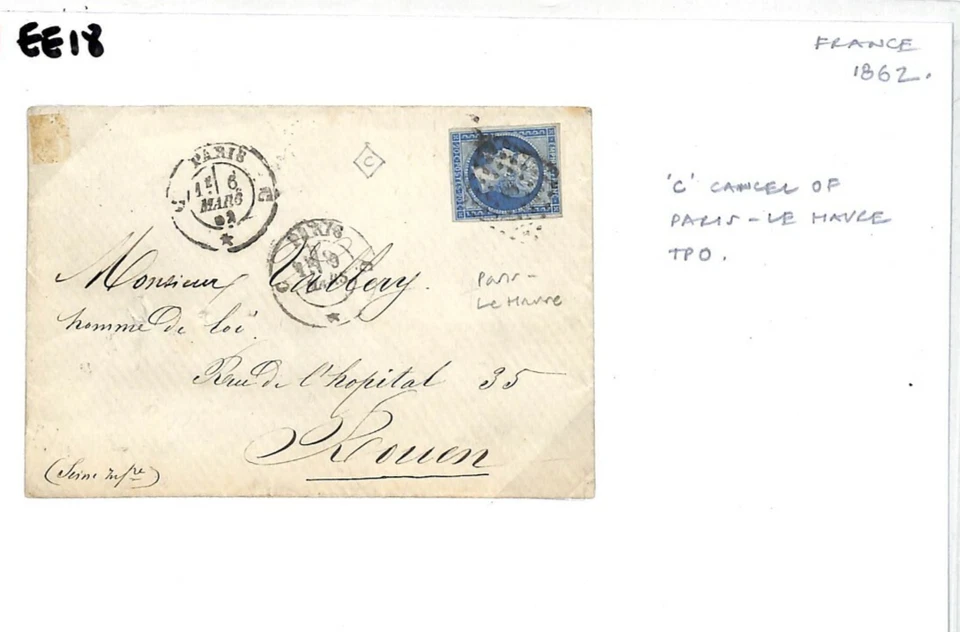 EE18
FRANCE
1862.
'C' CANCEL OF
PARIS - LE HAVRE
TPO.
PARIS
C
1E 6
MARS
62
C
PARIS
MARS
Monsieur
homme de loi
Rue de l'hopital 35
Rouen
(Seine Infre)
Paris -
Le Havre